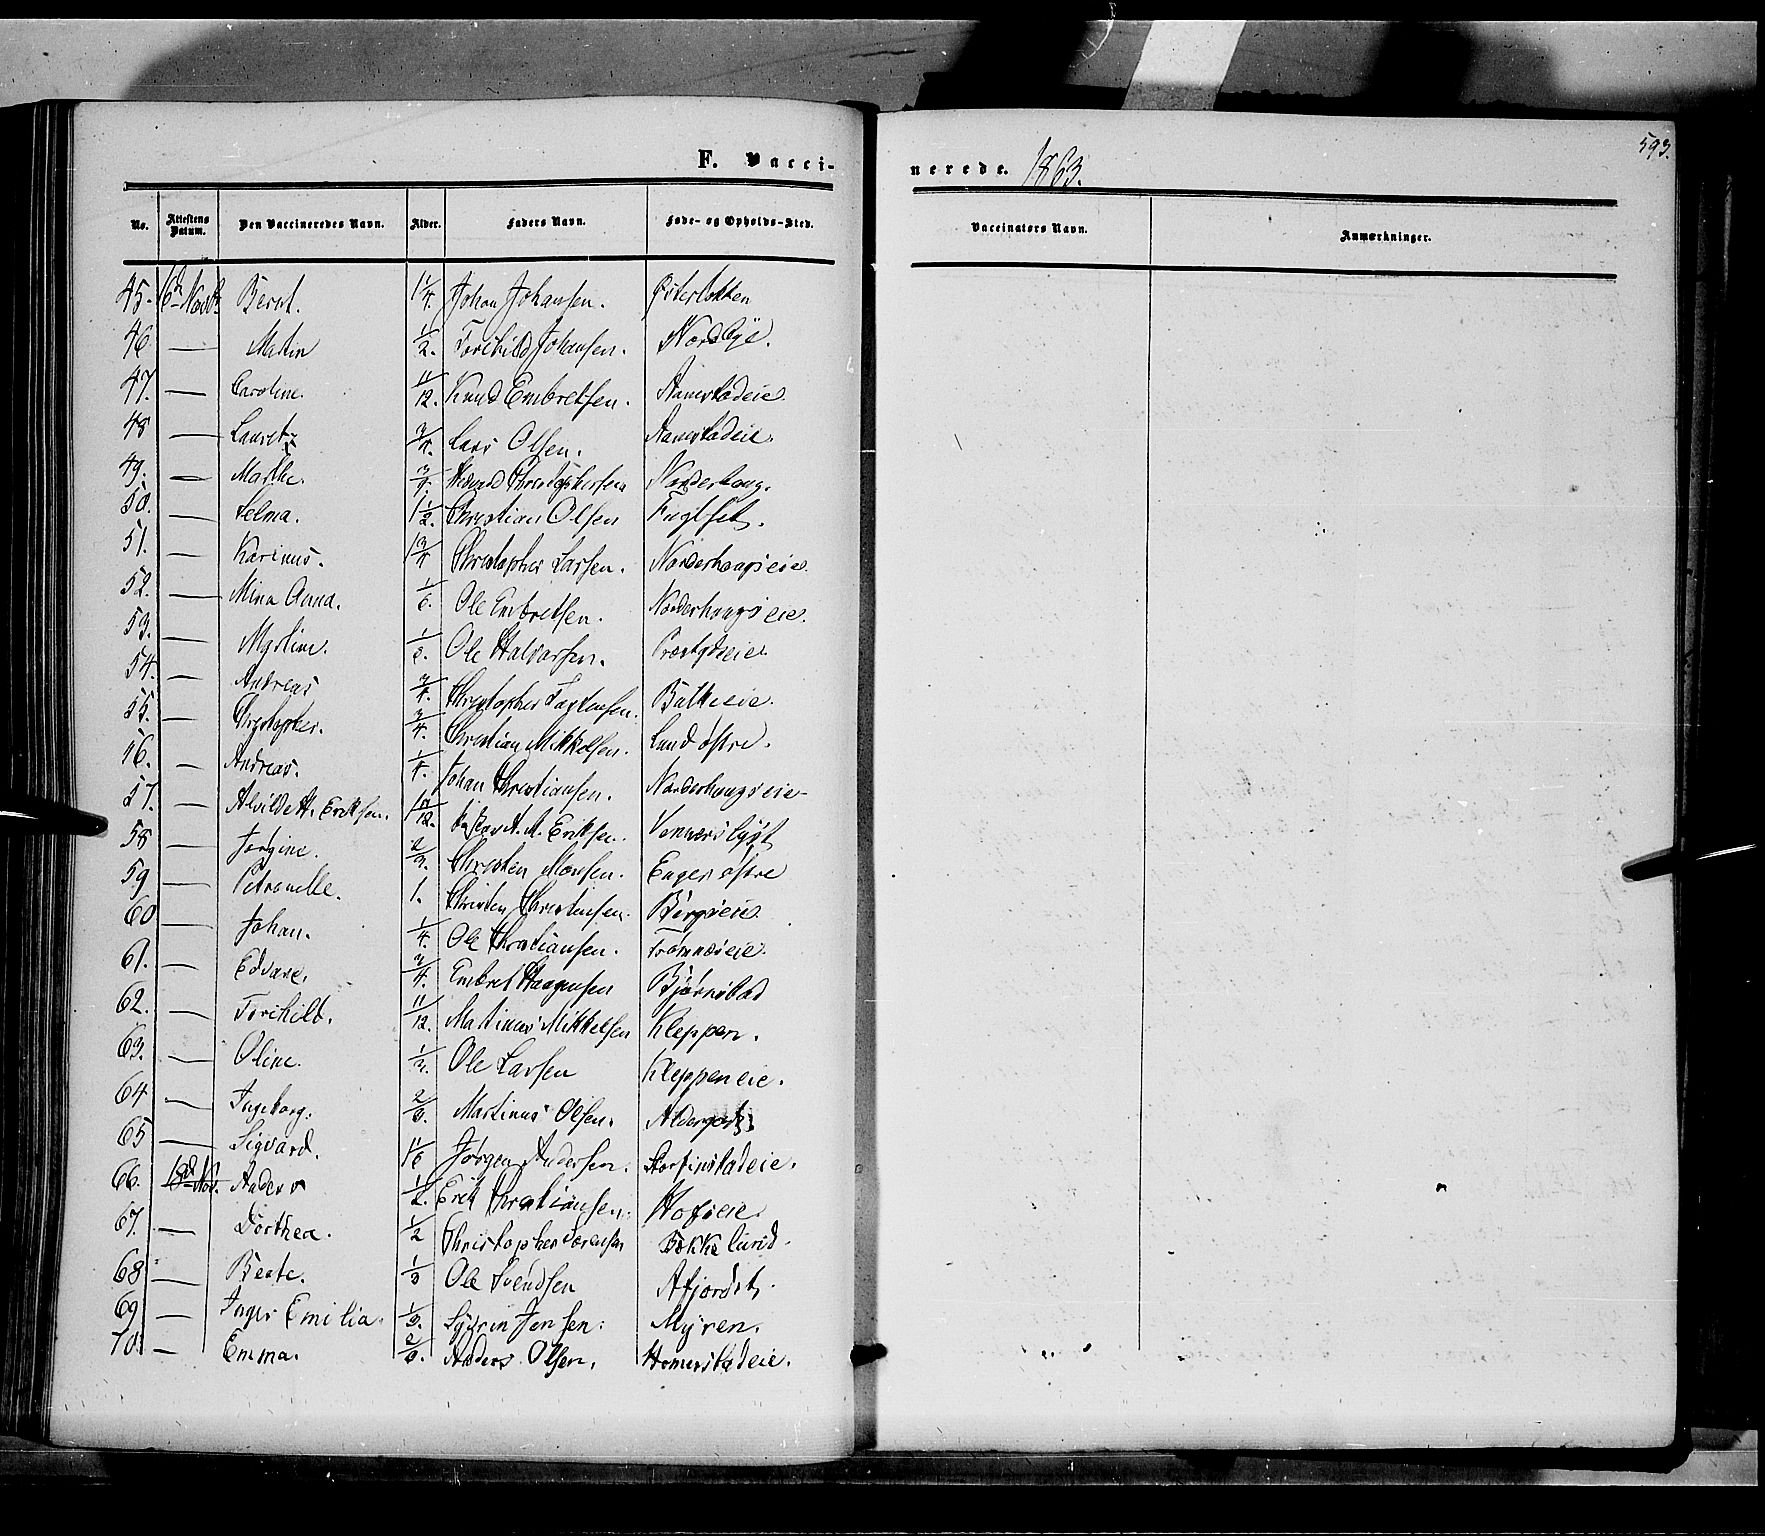 593.
F. Vacci-nerede. 1863.
No. Attestens Datum. Den Vaccineredes Navn. Alder. Faders Navn. Føde- og Opholds-Sted. Vaccinators Navn. Anmærkninger.
45. 6d Novbr Bernt. 1 1/4. Johan Johansen. Østerlokken
46 — Matin 1/2. Torchild Johansen. Nordbye.
47. — Caroline. 11/12. Knud Embretsen. Stanerstadeie.
48 — Lauretz 3/4. Lars Olsen. Stanerstadeie.
49. — Marthe. 3/4. Christophersen Norderhoug.
50. — Selma. 1 1/2. Christian Olsen Fuglset.
51. — Karinus. 1 3/4 Christopher Larsen. Norderhougseie.
52. — Mina Anna. 1/6. Ole Embretsen. Norderhougseie.
53. — Mystine. Ole Halvorsen. Præstgdseie.
54. — Andreas 3/4. Christopher Battheseie.
55. — Christopher. 3/4. Christian Mikkelsen. Lund østre.
56. — Andreas. 1/4. Johan Christiansen. Norderhougseie
57. — Alvilde H. Eriksen. 1 11/12. A. M. Eriksen. Vennerslyst
58 — Jørgine. 2/3. Christen Monsen. Enger østre
59 — Petronelle. 1. Christen Christensen. Bergseie.
60 — Johan. 1/4. Ole Christiansen.
61. — Edvard. 3/4. Embret Haagensen Bjørnstad
62. — Torchild. 11/12. Matinus Mikkelsen Kleppen.
63. — Oline. 1/2. Ole Larsen Kleppeneie.
64 — Ingeborg. 2/3. Martinus Olsen.
65 — Sigvard. 1 1/6 Jørgen Andersen. Storfinstadeie.
66. 18d Nov. Anders 1/2. Erik Christiansen. Hofseie.
67. — Dorthea. 1/2 Christopher Sørensen Bækkelund.
68 — Beate. 1/3 Ole Svendsen Afjordet.
69 — Inger Emilia. 1/3. Syverin Jensen. Myren.
70. — Emma. 2/3. Anders Olsen. Homerstadeie.